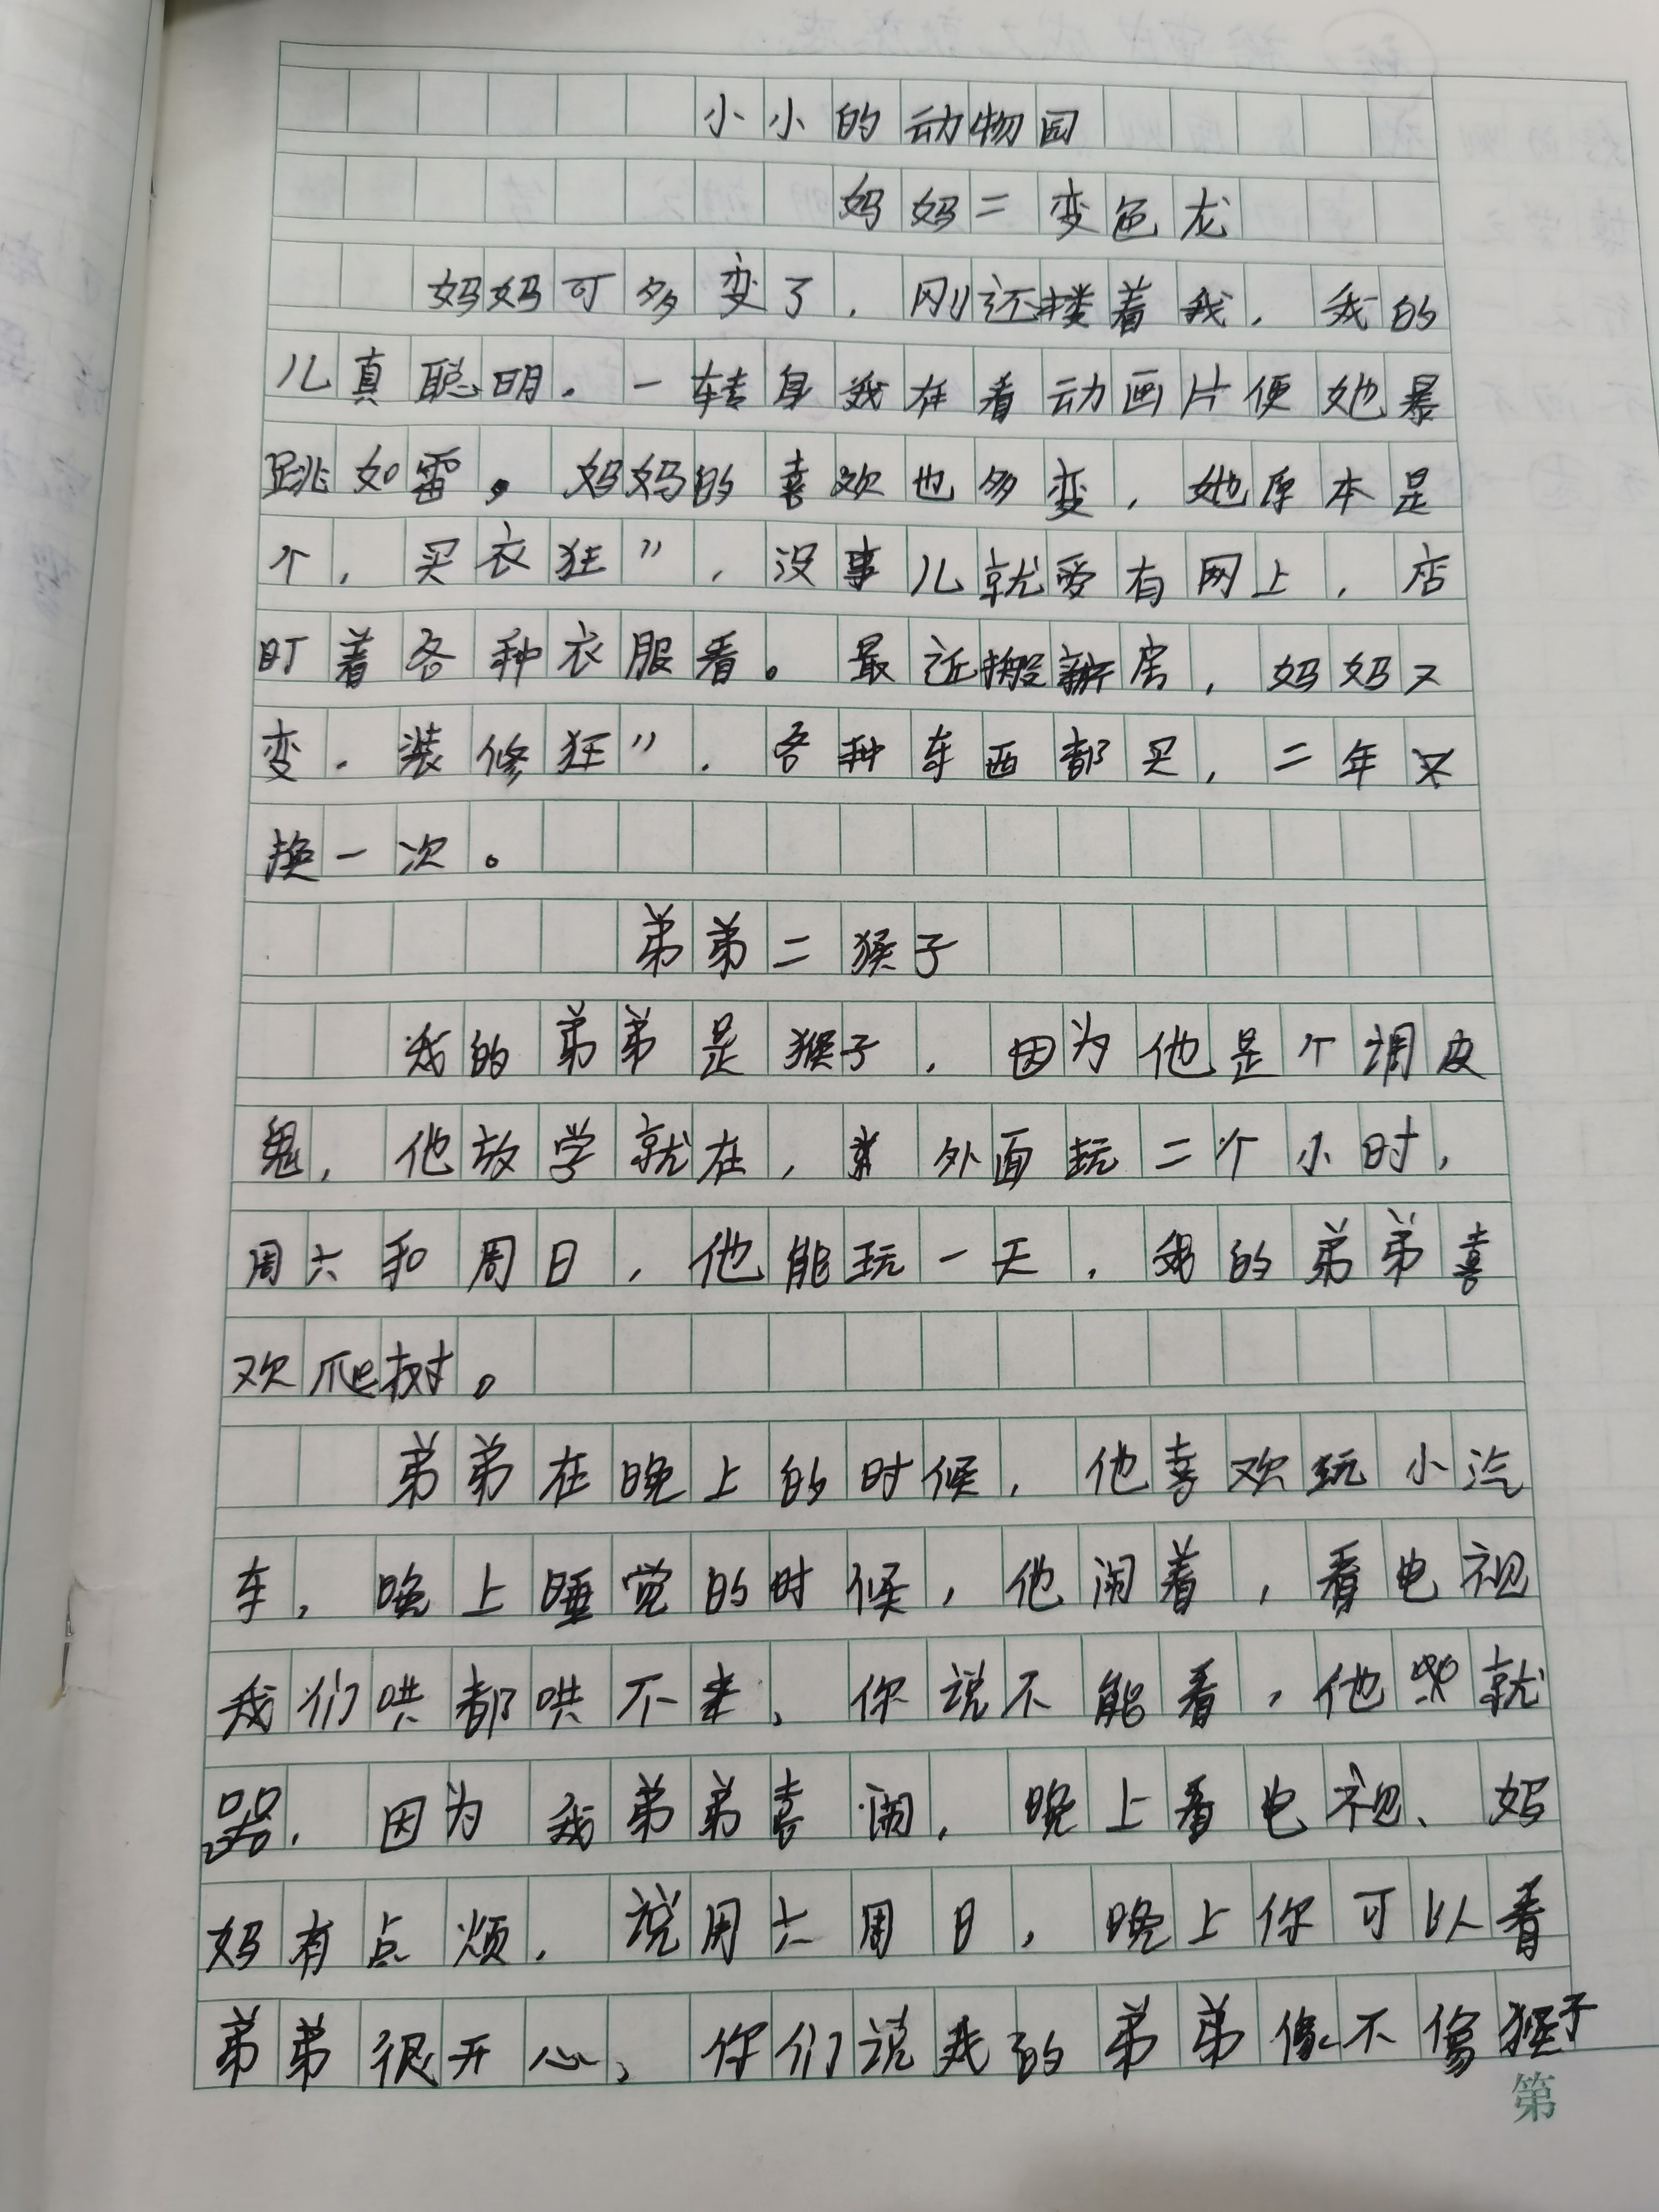 小小的动物园
妈妈二变色龙
妈妈可多变了，刚还搂着我，我的
儿真聪明。一转身我在看动画片便她暴
跳如雷，妈妈的喜欢也多变，她原本是
个，买衣狂”，没事儿就爱有网上，店
盯着各种衣服看。最近搬新房，妈妈又
变，装修狂”，各种东西都买，二年又
换一次。
弟弟二猴子
我的弟弟是猴子，因为他是个调皮
鬼，他放学就在，外面玩二个小时，
周六和周日，他能玩一天，我的弟弟喜
欢爬树。
弟弟在晚上的时候，他喜欢玩小汽
车，晚上睡觉的时候，他闹着，看电视
我们哄都哄不来、你说不能看，他就
器，因为我弟弟喜闹，晚上看电视、妈
妈有点烦，说周六周日，晚上你可以看
弟弟很开心、你们说我的弟弟像不像猴子
第